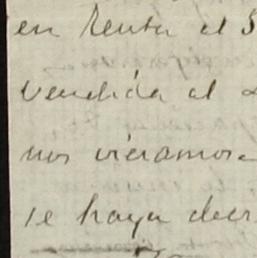 en Renta el 5
vendida al
nos vieramos
se haya